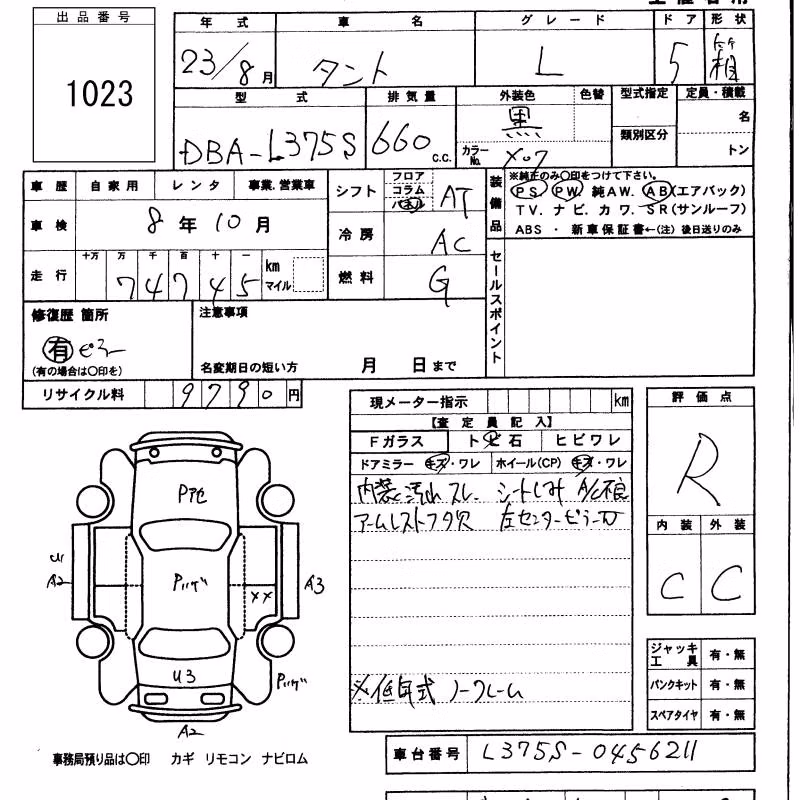 出品番号
1023
年式 車名 グレード ドア 形状
23/8月 タント L 5 箱
型式 排気量 外装色 色替 型式指定 定員・積載
DBA-L375S 660 c.c. 黒 カラーNo. X07 類別区分 名
トン
車歴 自家用 レンタ 事業、営業車
車検 8年10月
走行 十万 万 千 百 十 一
74745 km マイル
シフト フロア コラム AT
冷房 AC
燃料 G
装備品
※純正のみ○印をつけて下さい。
PS. PW. 純AW. AB(エアバック)
TV. ナビ. カワ. SR(サンルーフ)
ABS ・ 新車保証書←(注) 後日送りのみ
セールスポイント
修復歴 箇所
有 ピラー
(有の場合は○印を)
注意事項
名変期日の短い方 月 日まで
リサイクル料 9790円
現メーター指示 km
【査定員記入】
Fガラス トビ石 ヒビワレ
ドアミラー キズ・ワレ ホイール(CP) キズ・ワレ
内装汚れ スレ シートしみ A/C不良
アームレストフタ欠 左センターピラー
※低年式 ノークレーム
評価点
R
内装 外装
C C
ジャッキ
工具 有・無
パンクキット 有・無
スペアタイヤ 有・無
Pアセ
A2
A3
XX
U3
A2
事務局預り品は○印 カギ リモコン ナビロム
車台番号 L375S-0456211